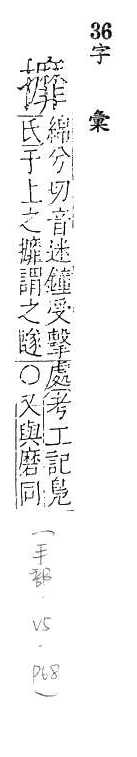 36
字彙
攠
綿兮切音迷鐘受擊處考工記鳧
氏于上之攠謂之隧○又與磨同
(手部.V5.P68)